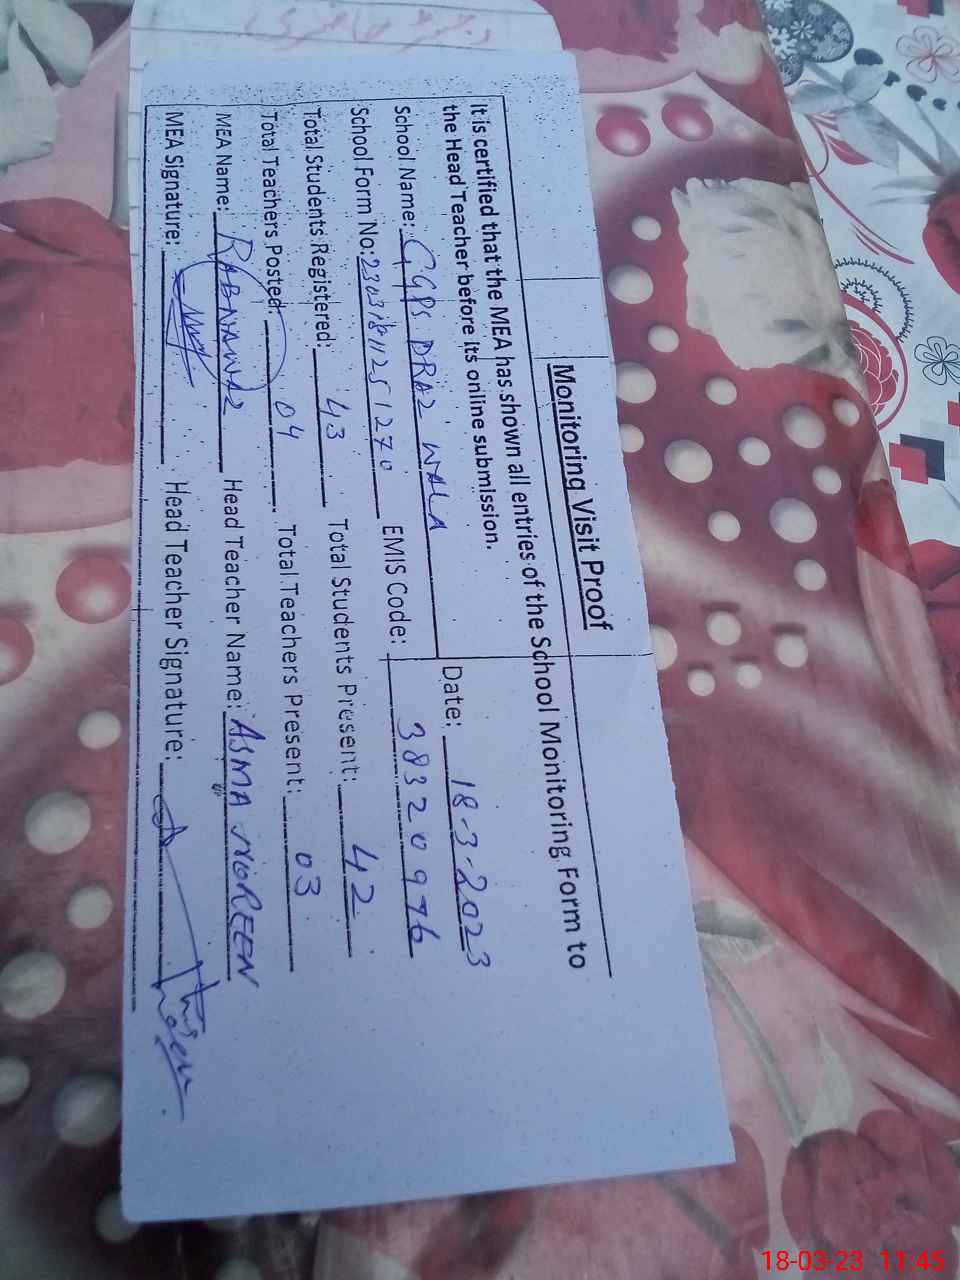 Monitoring Visit Proof
It is certified that the MEA has shown all entries of the School Monitoring Form to
the Head Teacher before its online submission.
School Name: GGPS DRAZ WALA Date: 18-3-2023
School Form No: 23031811251270 EMIS Code: 38320976
Total Students Registered: 43 Total Students Present: 42
Total Teachers Posted: 04 Total Teachers Present: 03
MEA Name: RABNAWAZ Head Teacher Name: ASMA NOREEN
MEA Signature: Head Teacher Signature:
18-03-23 11:45